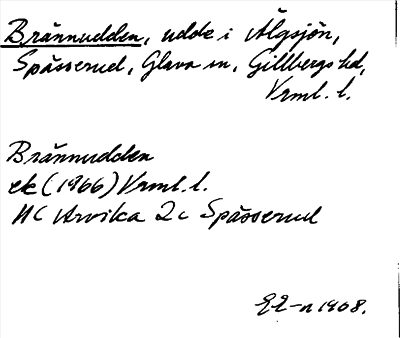 Brännudden, udde i Älgsjön,
Spässerud, Glava sn, Gillbergs hd,
Vrml. l.
Brännudden
ek (1966) Vrml. l.
NC Arvika 2c Spässerud
1908.